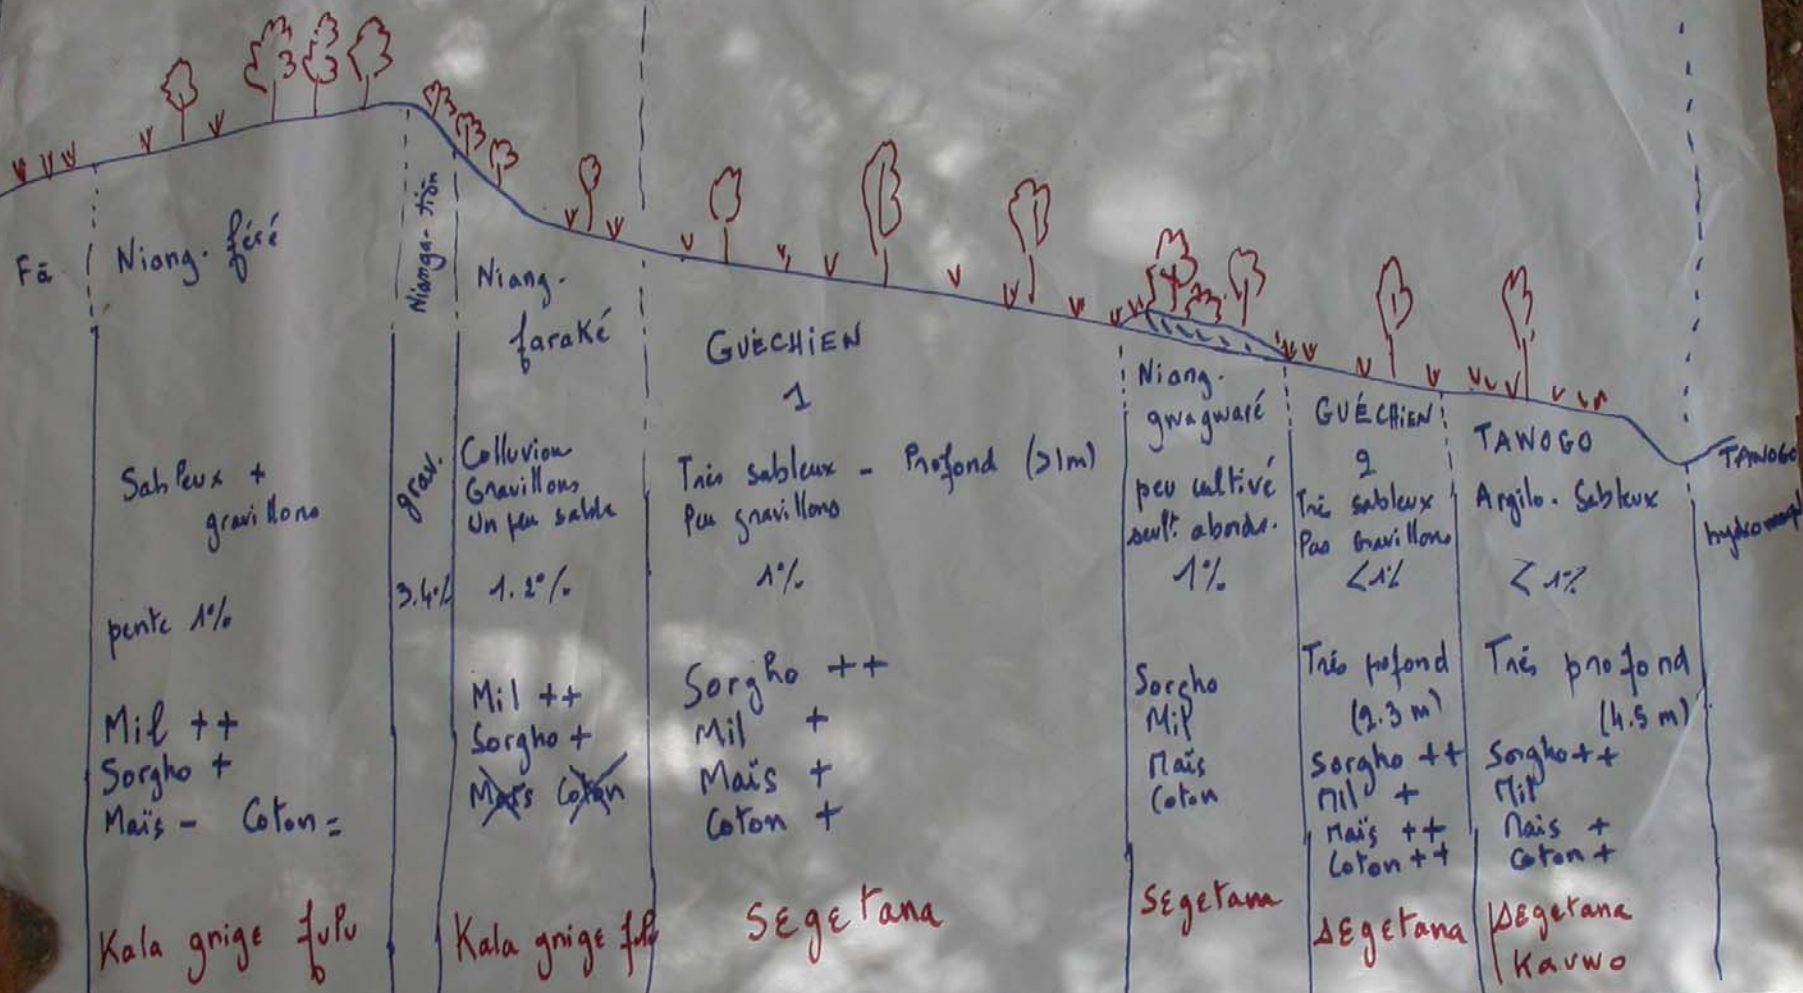 Fã
Niang. féré
Sableux +
gravillons
pente 1%
Mil ++
Sorgho +
Maïs - Coton =
Kala gnige fulu
Nianga-tiõn
grav.
3.4%
Niang.
faraké
Colluvion
Gravillons
Un peu sable
1.2%
Mil ++
Sorgho +
Maïs Coton
Kala gnige fulu
GUÈCHIEN
1
Très sableux - Profond (>1m)
Peu gravillons
1%
Sorgho ++
Mil +
Maïs +
Coton +
SEgETana
Niang.
gwagwaré
peu cultivé
seult. abords.
1%
Sorgho
Mil
Maïs
Coton
SEgETana
GUÉCHIEN
2
Très sableux
Pas Gravillons
<1%
Très pofond
(2.3 m)
Sorgho ++
Mil +
Maïs ++
Coton ++
SEgETana
TAWOGO
Argilo. Sableux
<1%
Très profond
(4.5 m)
Sorgho ++
Mil
Maïs +
Coton +
SEgETana
Kauwo
TAWOGO